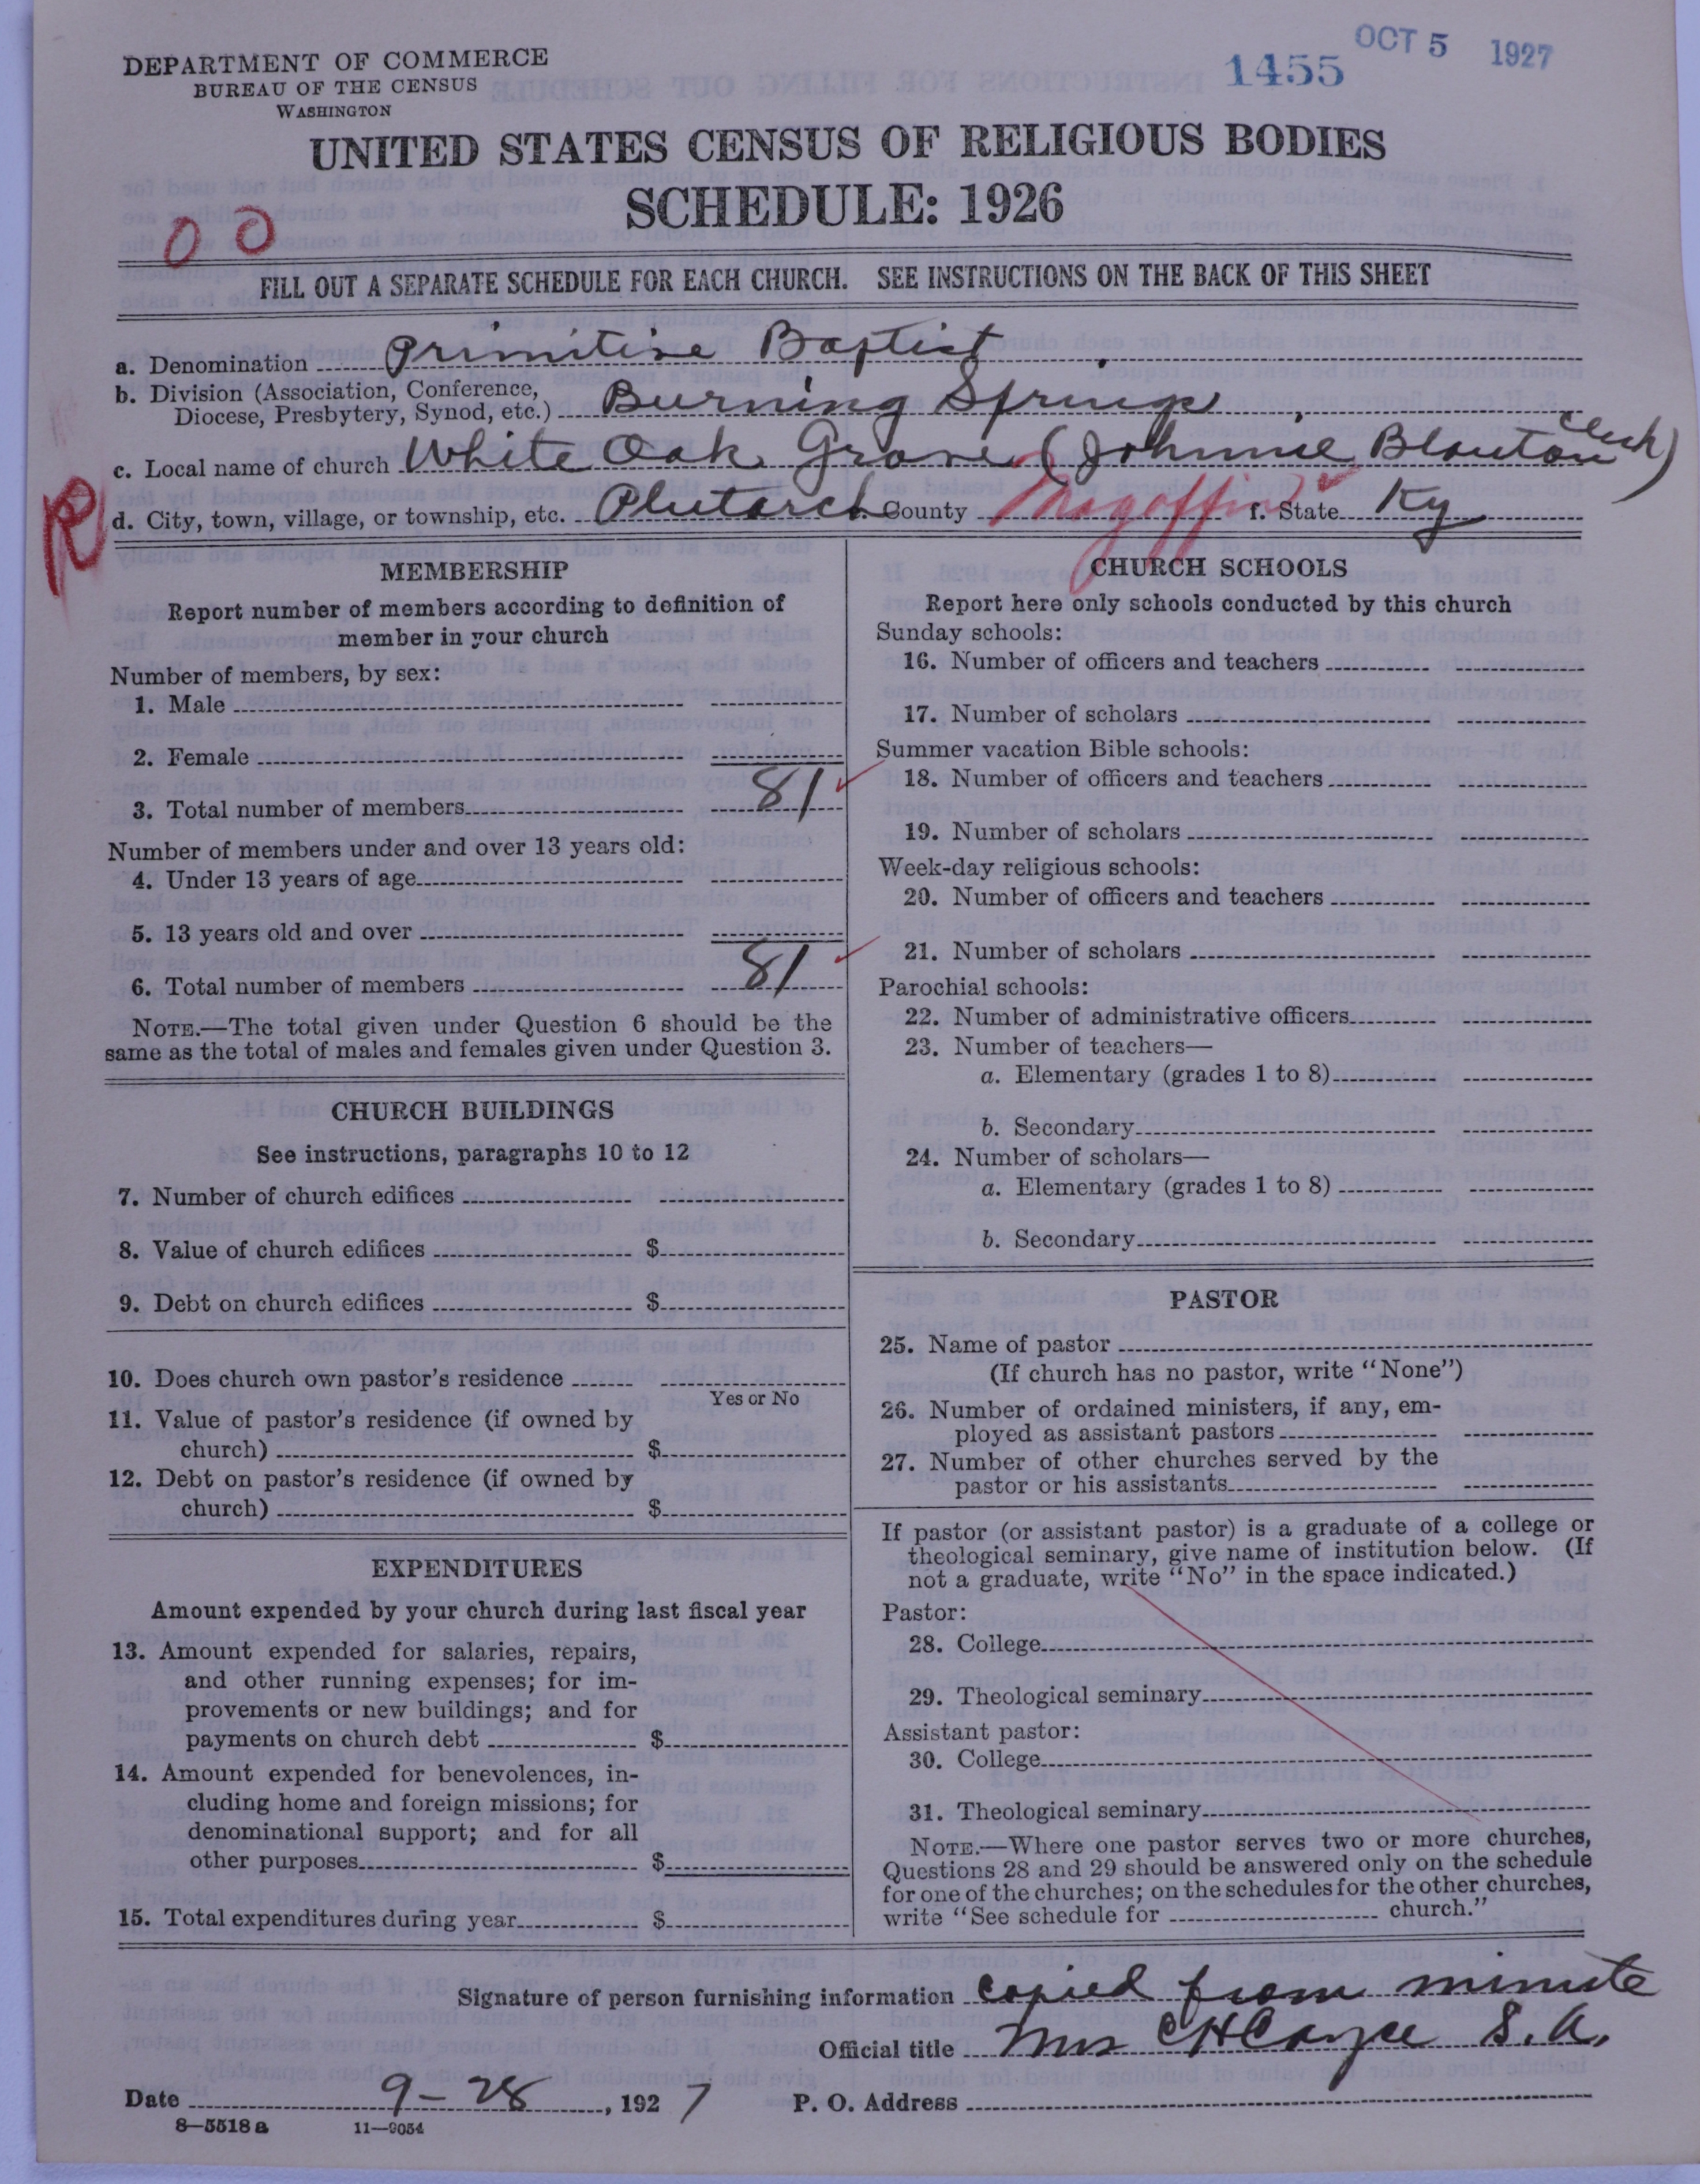 DEPARTMENT OF COMMERCE
BUREAU OF THE CENSUS
WASHINGTON
1455
OCT 5 1927
UNITED STATES CENSUS OF RELIGIOUS BODIES
SCHEDULE: 1926
00
FILL OUT A SEPARATE SCHEDULE FOR EACH CHURCH. SEE INSTRUCTIONS ON THE BACK OF THIS SHEET
a. Denomination Primitive Baptist
b. Division (Association, Conference,
Diocese, Presbytery, Synod, etc.) Burning Springs
c. Local name of church White Oak Grove (Johnnie Blanton Clerk)
R
d. City, town, village, or township, etc. Plutarch County Magoffin f. State Ky
MEMBERSHIP
Report number of members according to definition of
member in your church
Number of members, by sex:
1. Male
2. Female
3. Total number of members 81
Number of members under and over 13 years old:
4. Under 13 years of age
5. 13 years old and over
6. Total number of members 81
NOTE.—The total given under Question 6 should be the
same as the total of males and females given under Question 3.
CHURCH BUILDINGS
See instructions, paragraphs 10 to 12
7. Number of church edifices
8. Value of church edifices $
9. Debt on church edifices $
10. Does church own pastor's residence
Yes or No
11. Value of pastor's residence (if owned by
church) $
12. Debt on pastor's residence (if owned by
church) $
EXPENDITURES
Amount expended by your church during last fiscal year
13. Amount expended for salaries, repairs,
and other running expenses; for im-
provements or new buildings; and for
payments on church debt $
14. Amount expended for benevolences, in-
cluding home and foreign missions; for
denominational support; and for all
other purposes $
15. Total expenditures during year $
CHURCH SCHOOLS
Report here only schools conducted by this church
Sunday schools:
16. Number of officers and teachers
17. Number of scholars
Summer vacation Bible schools:
18. Number of officers and teachers
19. Number of scholars
Week-day religious schools:
20. Number of officers and teachers
21. Number of scholars
Parochial schools:
22. Number of administrative officers
23. Number of teachers—
a. Elementary (grades 1 to 8)
b. Secondary
24. Number of scholars—
a. Elementary (grades 1 to 8)
b. Secondary
PASTOR
25. Name of pastor
(If church has no pastor, write "None")
26. Number of ordained ministers, if any, em-
ployed as assistant pastors
27. Number of other churches served by the
pastor or his assistants
If pastor (or assistant pastor) is a graduate of a college or
theological seminary, give name of institution below. (If
not a graduate, write "No" in the space indicated.)
Pastor:
28. College
29. Theological seminary
Assistant pastor:
30. College
31. Theological seminary
NOTE.—Where one pastor serves two or more churches,
Questions 28 and 29 should be answered only on the schedule
for one of the churches; on the schedules for the other churches,
write "See schedule for church."
Signature of person furnishing information Copied from minute
Official title Mrs C H Cayce S. A.
Date 9-28, 1927 P. O. Address
8—5518 a 11—9054